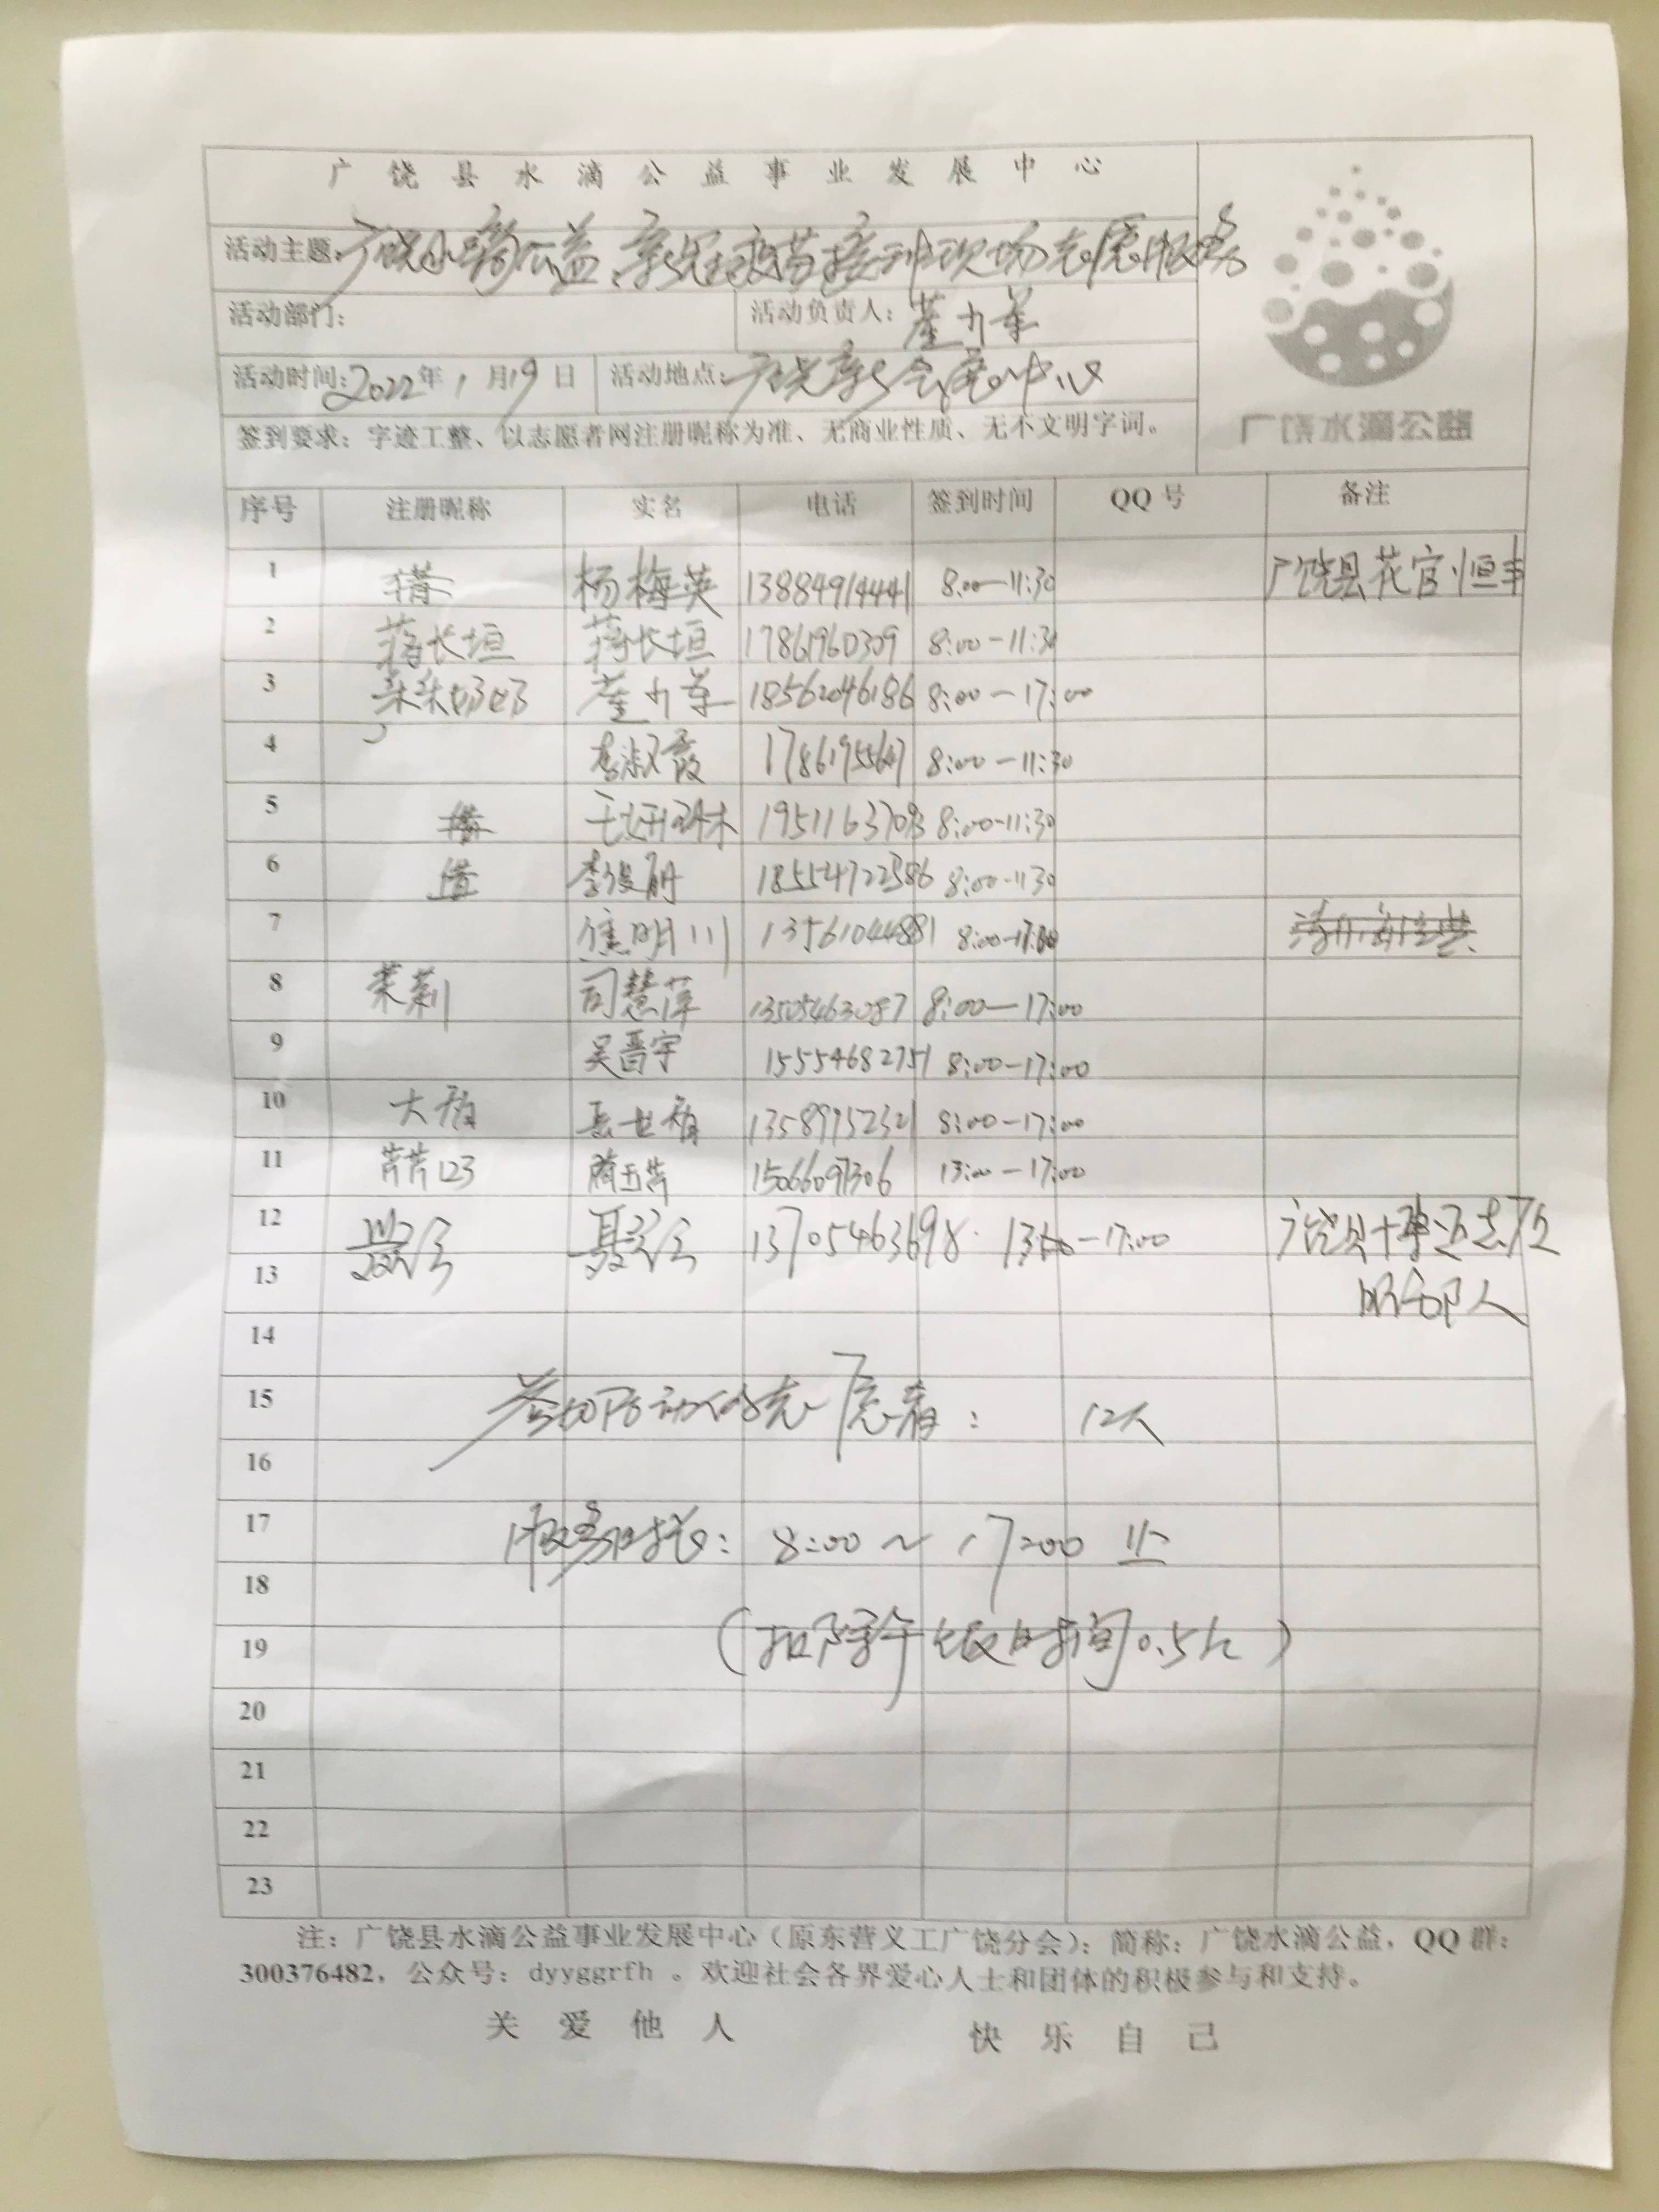 广饶县水滴公益事业发展中心
活动主题: 广饶水滴公益、新冠疫苗接种现场志愿服务
活动部门: 活动负责人:
活动时间: 2022年1月19日 活动地点: 广饶新会展中心
签到要求: 字迹工整、以志愿者网注册昵称为准、无商业性质、无不文明字词。
广饶水滴公益
序号 注册昵称 实名 电话 签到时间 QQ号 备注
1 杨梅英 13884914441 8:00—11:30 广饶县花官恒丰
2 蒋长垣 蒋长垣 17861960309 8:00-11:30
3 18562046186 8:00-17:00
4 李淑霞 17861955647 8:00-11:30
5 8:00-11:30
6 李俊丽 18554722586 8:00-11:30
7 焦明川 13561044881 8:00-17:00
8 茉莉 司慧萍 13505463087 8:00—17:00
9 吴晋宇 15554682751 8:00-17:00
10 13589952321 8:00-17:00
11 芹芹123 15066097306 13:00-17:00
12 13705463698 -17:00
13
14
15 参加活动的志愿者: 12人
16
17 服务时长: 8:00~17:00 止
18
19 (扣除午饭时间0.5h)
20
21
22
23
注: 广饶县水滴公益事业发展中心(原东营义工广饶分会); 简称: 广饶水滴公益, QQ群:
300376482, 公众号: dyyggrfh 。欢迎社会各界爱心人士和团体的积极参与和支持。
关爱他人 快乐自己